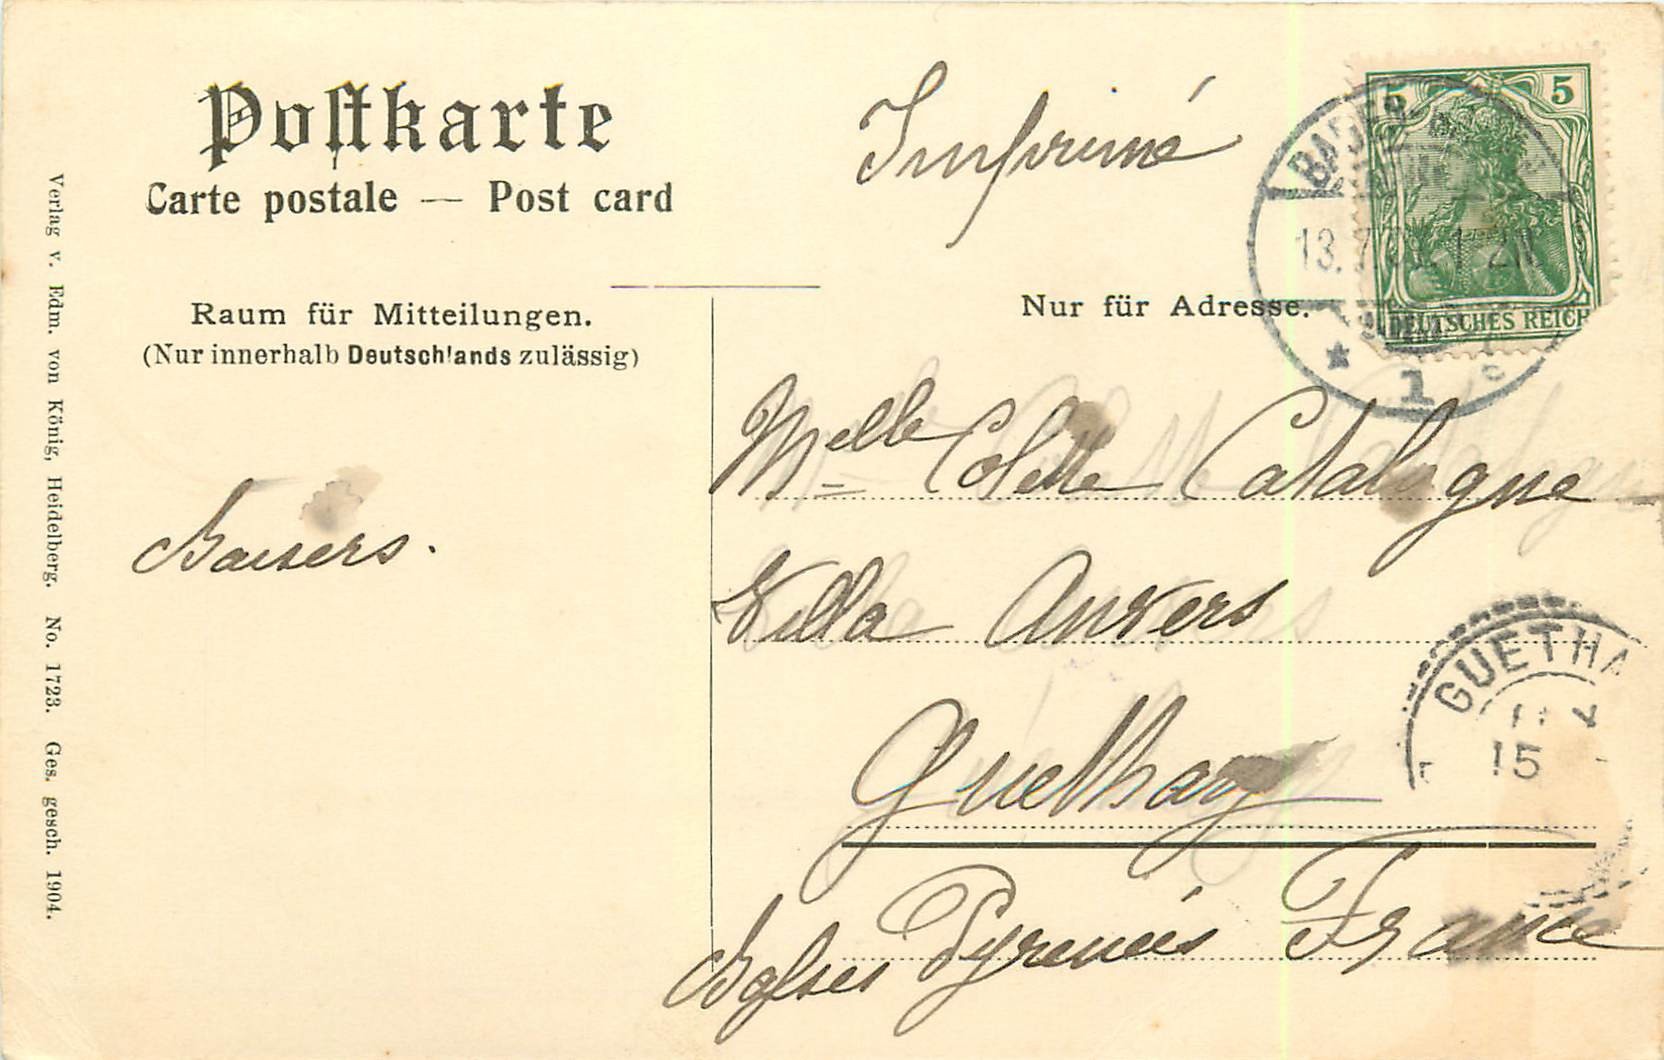 Postkarte
Carte postale — Post card
Raum für Mitteilungen.
(Nur innerhalb Deutschlands zulässig)
Verlag v. Edm. von König, Heidelberg. No. 1723. Ges. gesch. 1904.
Baisers.
Imprimé
5 5
DEUTSCHES REICH
BADEN
13.7
1
Nur für Adresse.
Melle Colette Catalogne
Villa Anvers
Guethary
Bsses Pyrenées France
GUETHA
15